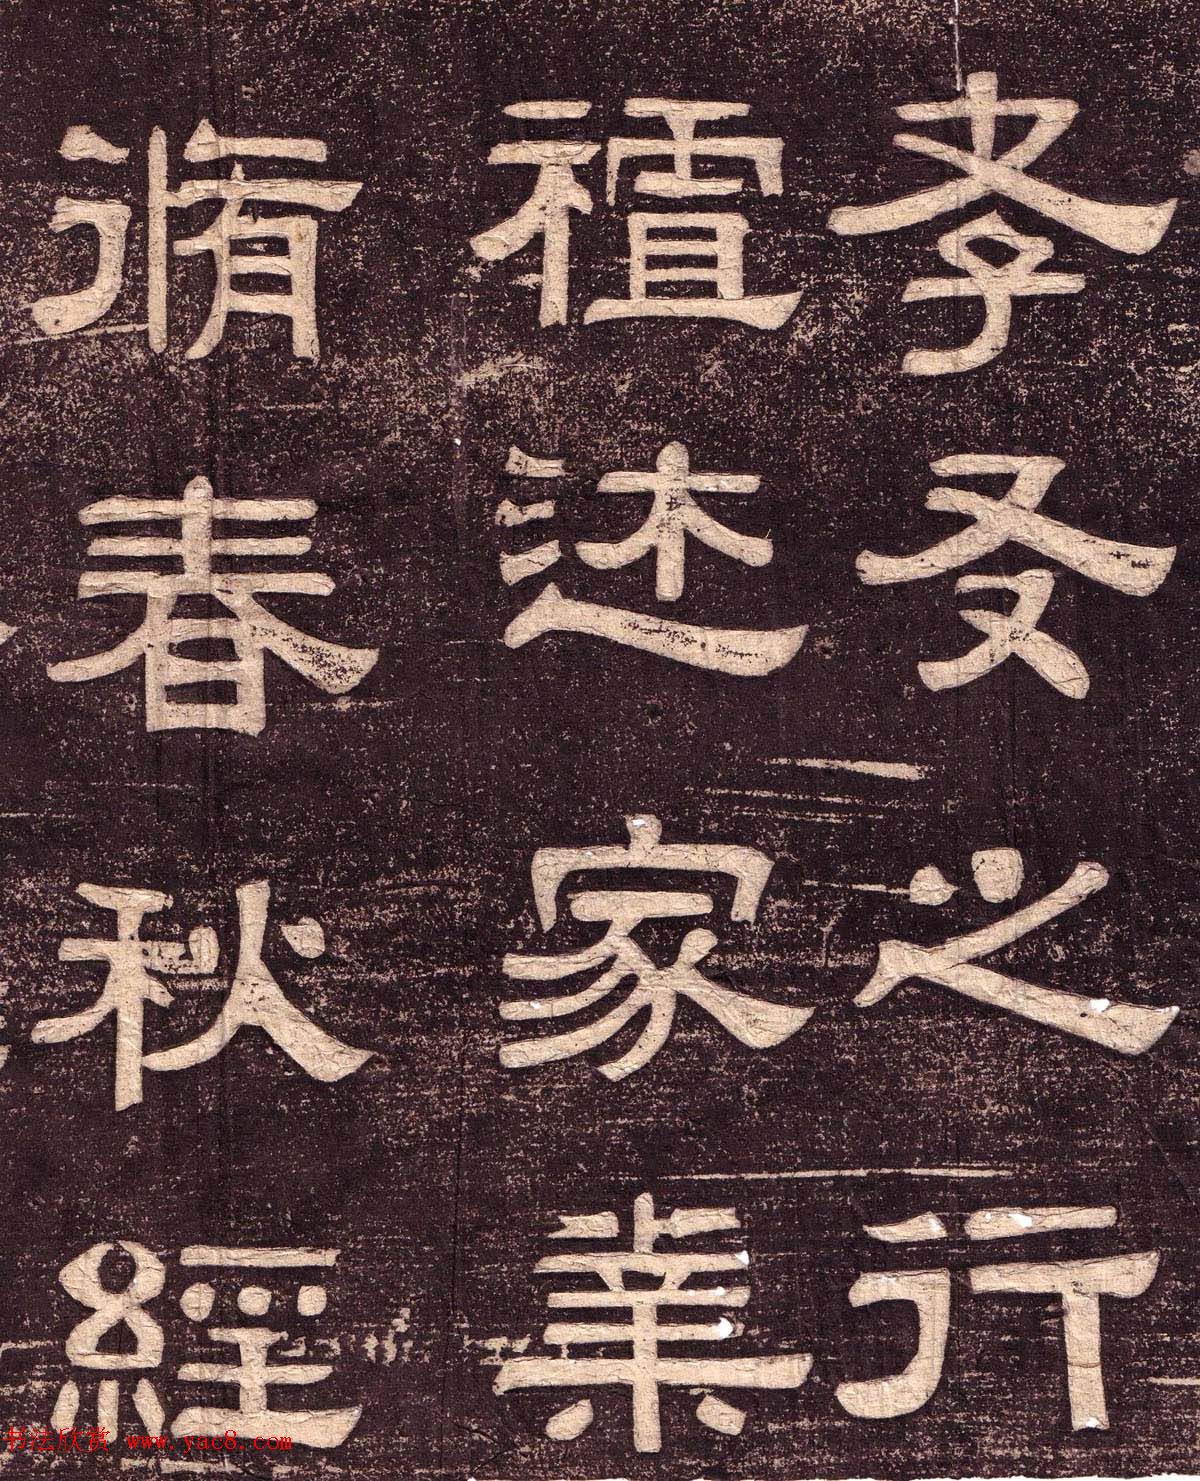 孝友之行
述家業
脩春秋經
书法欣赏 www.yac8.com